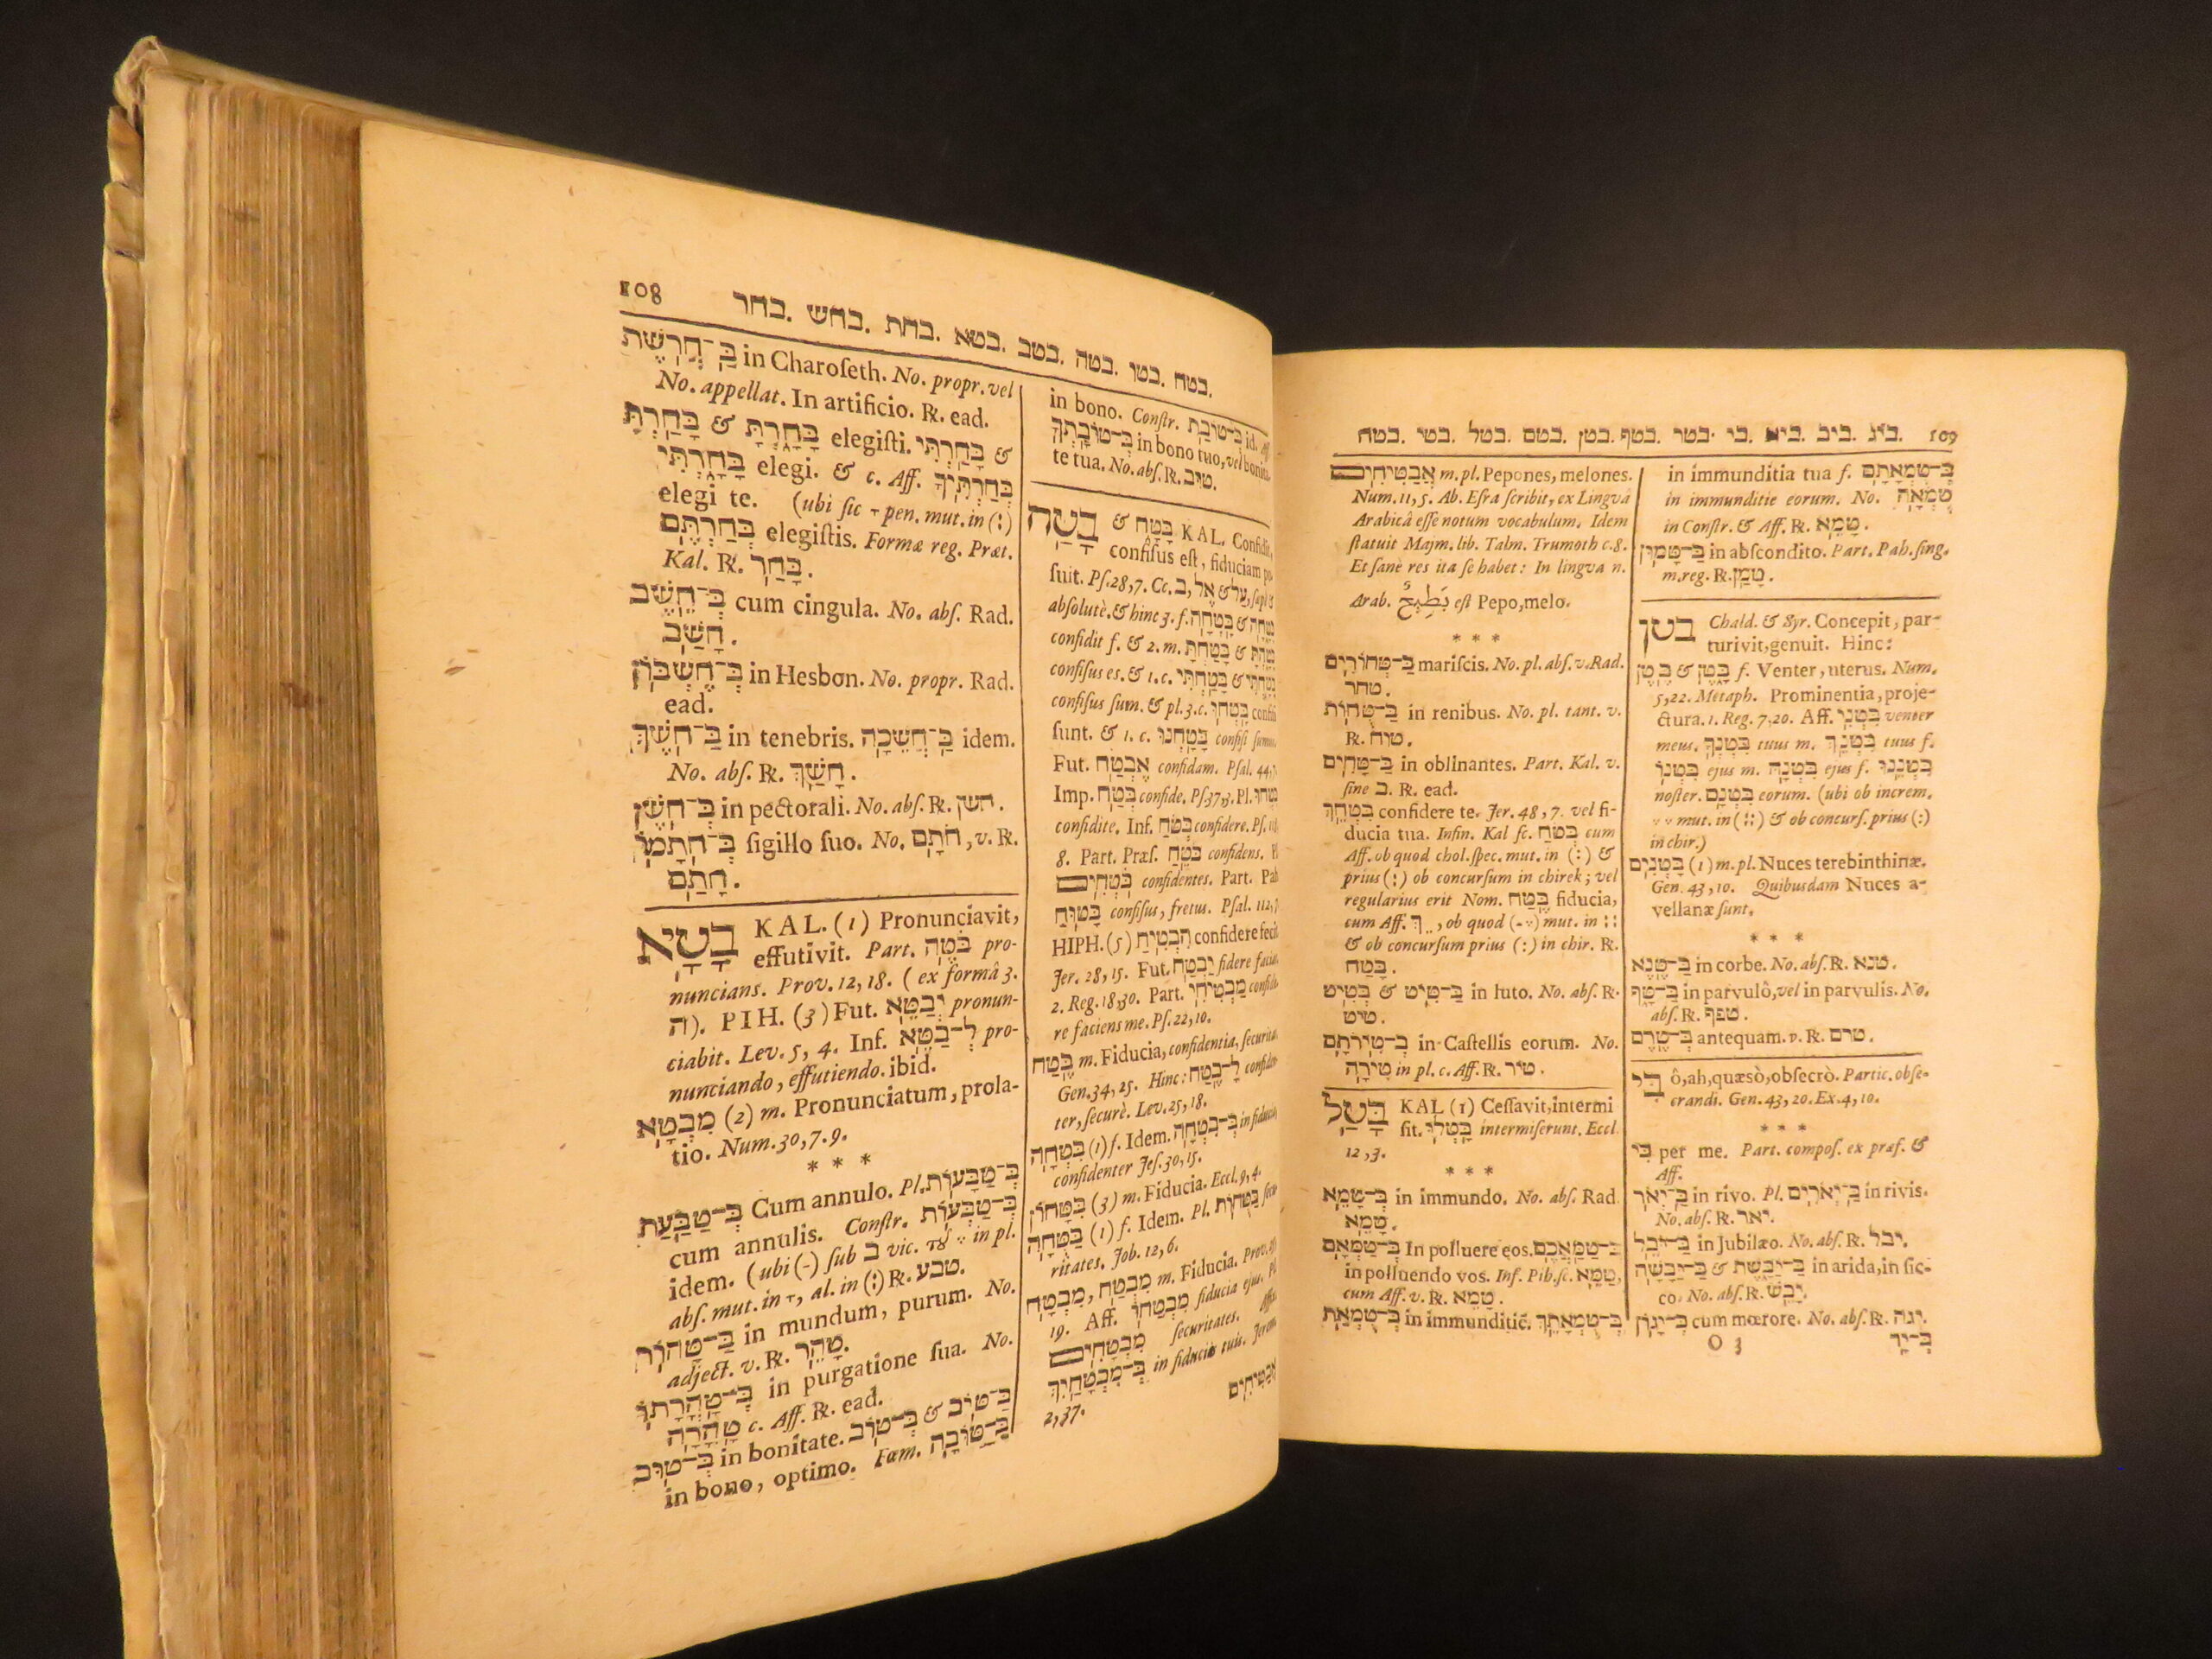 108 בחר. בחש. בחת. בטא. בטב. בטה. בטו. בטח.
בַּ־חֲרֹשֶׁת in Charoſeth. No. propr. vel
No. appellat. In artificio. ꝶ. ead.
בָּחַרְתָּ & בָּחָרְתָּ elegiſti. בָּחַרְתִּי &
בָּחָרְתִּי elegi. & c. Aff. בְּחַרְתִּיךָ
elegi te. (ubi ſic ־ pen. mut. in (:)
בְּחַרְתֶּם elegiſtis. Formæ reg. Præt.
Kal. ꝶ. בָּחַר.
בְּ־חֵשֶׁב cum cingula. No. abſ. Rad.
חָשַׁב.
בְּ־חֶשְׁבּוֹן in Hesbon. No. propr. Rad.
ead.
בַּ־חֹשֶׁךְ in tenebris. בַּ־חֲשֵׁכָה idem.
No. abſ. ꝶ. חָשַׁךְ.
בְּ־חֹשֶׁן in pectorali. No. abſ. ꝶ. חשן.
בְּ־חֹתָמוֹ ſigillo ſuo. No. חֹתָם, v. ꝶ.
חָתַם.
בָּטָא KAL. (1) Pronunciavit,
effutivit. Part. בֹּטֶה pro-
nuncians. Prov. 12, 18. (ex formâ 3.
ה). PIH. (3) Fut. יְבַטֵּא pronun-
ciabit. Lev. 5, 4. Inf. לְ־בַטֵּא pro-
nunciando, effutiendo. ibid.
מִבְטָא (2) m. Pronunciatum, prola-
tio. Num. 30, 7. 9.
* * *
בְּ־טַבַּעַת Cum annulo. Pl. בְּ־טַבָּעוֹת
cum annulis. Conſtr. בְּ־טַבְּעוֹת
idem. (ubi (-) ſub ב vic. in pl.
abſ. mut. in ־, al. in (:) ꝶ. טבע.
בַּ־טָּהוֹר in mundum, purum. No.
adject. v. ꝶ. טָהֵר.
בְּ־טָהֳרָתוֹ in purgatione ſua. No.
טָהֳרָה c. Aff. ꝶ. ead.
בְּ־טוּב in bonitate. בְּ־טוֹב & בַּ־טּוֹב
in bono, optimo. Fœm. בַּ־טּוֹבָה
in bono. Conſtr. בְּ־טוֹבַת id.
בְּ־טוֹבָתְךָ in bono tuo, vel bonita-
te tua. No. abſ. ꝶ. טוּב.
בָּטַח & בָּטָח KAL. Confidit,
confiſus eſt, fiduciam po-
ſuit. Pſ. 28, 7. Cc. ב, אֶל & עַל,
abſolutè. & hinc 3. f. בָּטְחָה & בָּטָחָה
confidit f. & 2. m. בָּטַחְתָּ & בָּטָחְתָּ
confiſus es. & 1. c. בָּטַחְתִּי & בָּטָחְתִּי
confiſus ſum. & pl. 3. c. בָּטְחוּ confiſi
ſunt. & 1. c. בָּטַחְנוּ confiſi ſumus.
Fut. אֶבְטַח confidam. Pſal. 44, 7.
Imp. בְּטַח confide. Pſ. 37, 3. Pl. בִּטְחוּ
confidite. Inf. בְּטֹחַ confidere. Pſ. 118,
8. Part. Præſ. בֹּטֵחַ confidens.
בֹּטְחִים confidentes. Part. Pah
בָּטוּחַ confiſus, fretus. Pſal. 112, 7.
HIPH. (5) הִבְטִיחַ confidere fecit
Jer. 28, 15. Fut. יַבְטַח fidere faciat.
2. Reg. 18, 30. Part. מַבְטִיחִי confide-
re faciens me. Pſ. 22, 10.
בֶּטַח m. Fiducia, confidentia, ſecuritas
Gen. 34, 25. Hinc: לָ־בֶטַח confiden-
ter, ſecurè. Lev. 25, 18.
בִּטְחָה (1) f. Idem. בְּ־בִטְחָה in fiducia,
confidenter Jeſ. 30, 15.
בִּטָּחוֹן (3) m. Fiducia. Eccl. 9, 4.
בַּטֻּחָה (1) f. Idem. Pl. בַּטֻּחוֹת ſecu-
ritates. Job. 12, 6.
מִבְטָח, מִבְטַח m. Fiducia. Prov.
19. Aff. מִבְטַחוֹ fiducia ejus. Pl.
מִבְטָחִים ſecuritates.
בְּ־מִבְטָחַיִךְ in fiduciis tuis. Jerem.
2, 37.
אבטיחים
בטח. בטי. בטל. בטם. בטן. בטף. בטר. בי. ביא. ביב. ביג. 109
אֲבַטִּיחִים m. pl. Pepones, melones.
Num. 11, 5. Ab. Eſra ſcribit, ex Linguâ
Arabicâ eſſe notum vocabulum. Idem
ſtatuit Majm. lib. Talm. Trumoth c. 8.
Et ſanè res ita ſe habet: In lingva n.
Arab. بَطِّيخٌ eſt Pepo, melo.
* * *
בַּ־טְּחוֹרִים mariſcis. No. pl. abſ. v. Rad.
טחר.
בַּ־טֻּחוֹת in renibus. No. pl. tant. v.
ꝶ. טוּח.
בַּ־טָּחִים in oblinantes. Part. Kal. v.
ſine ב. ꝶ. ead.
בִּטְחֵךְ confidere te. Jer. 48, 7. vel fi-
ducia tua. Infin. Kal ſc. בְּטֹחַ cum
Aff. ob quod chol. ſpec. mut. in (:) &
prius (:) ob concurſum in chirek; vel
regularius erit Nom. בֶּטַח fiducia,
cum Aff. ךְ, ob quod mut. in ::
& ob concurſum prius (:) in chir. ꝶ.
בָּטַח.
בַּ־טִּיט & בְּטִיט in luto. No. abſ. ꝶ.
טיט.
בְּ־טִירֹתָם in Caſtellis eorum. No.
טִירָה in pl. c. Aff. ꝶ. טוֹר.
בָּטַל KAL (1) Ceſſavit, intermi
ſit. בָּטְלוּ intermiſerunt. Eccl.
12, 3.
* * *
בְּ־טָמֵא in immundo. No. abſ. Rad
טָמֵא.
בְּ־טַמְּאָם In polluere eos. בְּ־טַמַּאֲכֶם
in polluendo vos. Inf. Pih. ſc. טַמֵּא,
cum Aff. v. ꝶ. טָמֵא.
בְּ־טֻמְאַת in immunditie. בְּ־טֻמְאָתֵךְ
in immunditia tua f. בְּ־טֻמְאָתָם
in immunditie eorum. No. טֻמְאָה
in Conſtr. & Aff. ꝶ. טָמֵא.
בַּ־טָּמוּן in abſcondito. Part. Pah. ſing.
m. reg. ꝶ. טָמַן.
בטן Chald. & Syr. Concepit, par-
turivit, genuit. Hinc:
בֶּטֶן & בָּטֶן f. Venter, uterus. Num.
5, 22. Metaph. Prominentia, proje-
ctura. 1. Reg. 7. 20. Aff. בִּטְנִי venter
meus. בִּטְנְךָ tuus m. בִּטְנֵךְ tuus f.
בִּטְנוֹ ejus m. בִּטְנָהּ ejus f. בִּטְנֵנוּ
noſter. בִּטְנָם eorum. (ubi ob increm.
mut. in (::) & ob concurſ. prius (:)
in chir.)
בָּטְנִים (1) m. pl. Nuces terebinthinæ.
Gen. 43, 10. Quibusdam Nuces a-
vellanæ ſunt.
* * *
בַּ־טֶּנֶא in corbe. No. abſ. ꝶ. טנא.
בַּ־טָּף in parvulô, vel in parvulis. No.
abſ. ꝶ. טפף.
בְּ־טֶרֶם antequam. v. ꝶ. טרם.
בִּי ô, ah, quæsò, obſecrò. Partic. obſe-
crandi. Gen. 43, 20. Ex. 4, 10.
* * *
בִּי per me. Part. compoſ. ex præf. &
Aff.
בַּ־יְאֹר in rivo. Pl. בִּ־יְאֹרִים in rivis.
No. abſ. ꝶ. יאר.
בַּ־יּוֹבֵל in Jubilæo. No. abſ. ꝶ. יבל.
בַּ־יַּבָּשָׁה & בַּ־יַּבֶּשֶׁת in arida, in ſic-
co. No. abſ. ꝶ. יָבֵשׁ.
בְּ־יָגוֹן cum mœrore. No. abſ. ꝶ. יגה.
O 3 בְּ־יַד